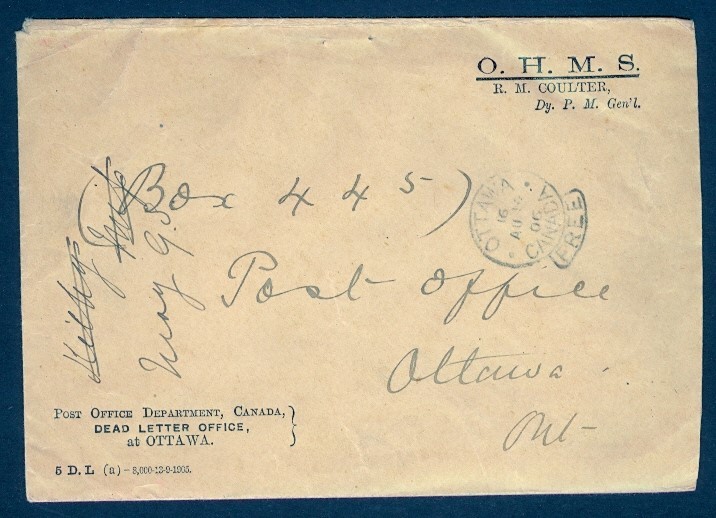 O. H. M. S.
R. M. COULTER,
Dy. P. M. Gen'l.
(Box 445)
Post Office
Ottawa
Ont-
OTTAWA
CANADA
FREE
May 95
POST OFFICE DEPARTMENT, CANADA,
DEAD LETTER OFFICE,
at OTTAWA.
5 D. L (a) – 8,000-13-9-1905.